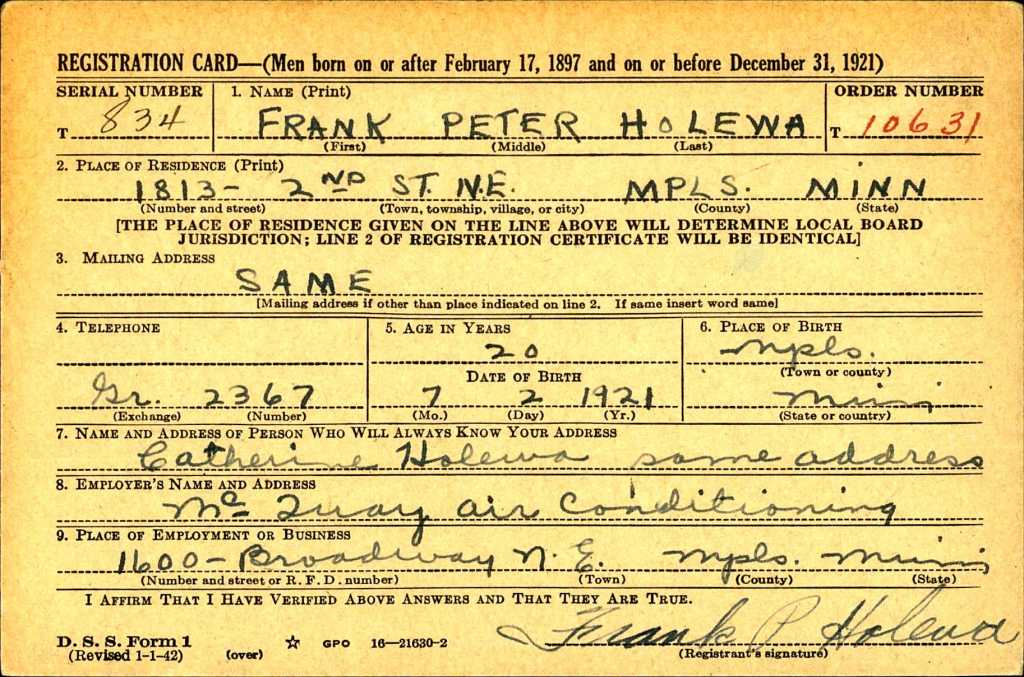 REGISTRATION CARD—(Men born on or after February 17, 1897 and on or before December 31, 1921)
SERIAL NUMBER 1. NAME (Print) ORDER NUMBER
T 834 FRANK PETER HOLEWA T 10631
(First) (Middle) (Last)
2. PLACE OF RESIDENCE (Print)
1813- 2ND ST. N.E. MPLS. MINN
(Number and street) (Town, township, village, or city) (County) (State)
[THE PLACE OF RESIDENCE GIVEN ON THE LINE ABOVE WILL DETERMINE LOCAL BOARD
JURISDICTION; LINE 2 OF REGISTRATION CERTIFICATE WILL BE IDENTICAL]
3. MAILING ADDRESS
SAME
[Mailing address if other than place indicated on line 2. If same insert word same]
4. TELEPHONE 5. AGE IN YEARS 6. PLACE OF BIRTH
20 Mpls.
DATE OF BIRTH (Town or county)
Gr. 2367 7 2 1921 Minn
(Exchange) (Number) (Mo.) (Day) (Yr.) (State or country)
7. NAME AND ADDRESS OF PERSON WHO WILL ALWAYS KNOW YOUR ADDRESS
Catherine Holewa same address
8. EMPLOYER'S NAME AND ADDRESS
Mc Quay air Conditioning
9. PLACE OF EMPLOYMENT OR BUSINESS
1600- Broadway N. E. Mpls. Minn
(Number and street or R. F. D. number) (Town) (County) (State)
I AFFIRM THAT I HAVE VERIFIED ABOVE ANSWERS AND THAT THEY ARE TRUE.
D. S. S. Form 1
(Revised 1-1-42) (over) ☆ GPO 16—21630-2 Frank P Holewa
(Registrant's signature)